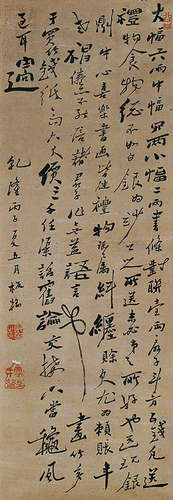 大幅六兩中幅四兩小幅二兩書條對聯壹兩扇子斗方五錢凡送
禮物食物總不如白銀為妙公之所送未必弟之所好也送現銀
則中心喜樂書畫皆佳禮物既屬糾纏賒欠尤為賴賬年
老神倦不能陪諸君子作無益語言也畫竹多
于買竹錢紙高六尺價三千任渠話舊論交接只當秋風
過耳邊
乾隆丙子夏五月板橋